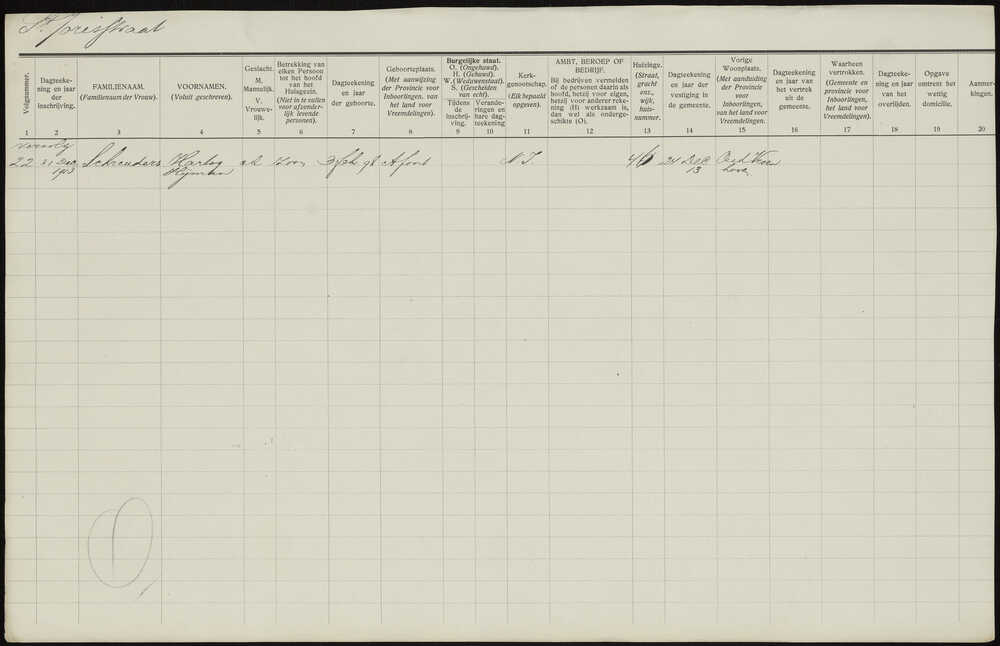 St Jorisstraat
Volgnummer.
Dagteekening en jaar der inschrijving.
FAMILIENAAM.
(Familienaam der Vrouw).
VOORNAMEN.
(Voluit geschreven).
Geslacht.
M. Mannelijk.
V. Vrouwelijk.
Betrekking van elken Persoon tot het hoofd van het Huisgezin.
(Niet in te vullen voor afzonderlijk levende personen).
Dagteekening en jaar der geboorte.
Geboorteplaats.
(Met aanwijzing der Provincie voor Inboorlingen, van het land voor Vreemdelingen).
Burgelijke staat.
O. (Ongehuwd).
H. (Gehuwd).
W. (Weduwenstaat).
S. (Gescheiden van echt).
Tijdens de inschrijving.
Veranderingen en hare dagteekening
Kerkgenootschap.
(Elk bepaald opgeven).
AMBT, BEROEP OF BEDRIJF.
Bij bedrijven vermelden of de personen daarin als hoofd, hetzij voor eigen, hetzij voor anderer rekening (H) werkzaam is, dan wel als ondergeschikte (O).
Huizinge.
(Straat, gracht enz., wijk, huisnummer.
Dagteekening en jaar der vestiging in de gemeente.
Vorige Woonplaats.
(Met aanduiding der Provincie voor Inboorlingen, van het land voor Vreemdelingen.
Dagteekening en jaar van het vertrek uit de gemeente.
Waarheen vertrokken.
(Gemeente en provincie voor Inboorlingen, het land voor Vreemdelingen).
Dagteekening en jaar van het overlijden.
Opgave omtrent het wettig domicilie.
Aanmerkingen.
1 2 3 4 5 6 7 8 9 10 11 12 13 14 15 16 17 18 19 20
vervolg
22 Dec Schreuders Hartog Zoon N I. 24 Dec
1913 Hijman 13